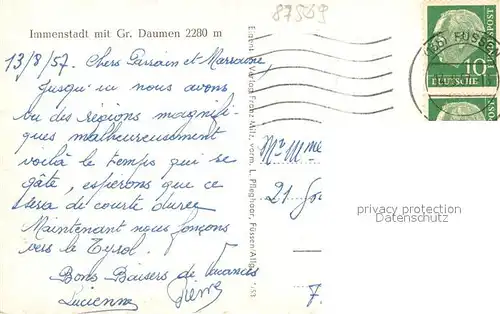 87569
Immenstadt mit Gr. Daumen 2280 m
13/8/57. Chers Parrain et Marraine,
Jusqu'ici nous avons
vu des régions magnifi-
ques malheureusement
voilà le temps qui se
gâte, espérons que ce
sera de courte durée
Maintenant nous fonçons
vers le Tyrol.
Bons Baisers de vacances
Lucienne Pierre
Verlag Franz Milz, vorm. L. Pfleghaar, Füssen/Allgäu
FÜSSEN
POST
10
DEUTSCHE
Mr Mme
21
privacy protection
Datenschutz
7.